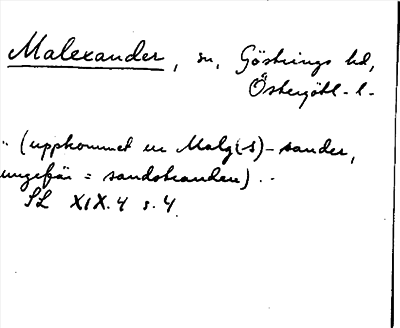 Malexander, sn, Göstrings hd,
Östergötl-l-
.. (uppkommet ur Malg(s)-sander,
ungefär = sandstranden) ..
SL XIX.4 s.4.